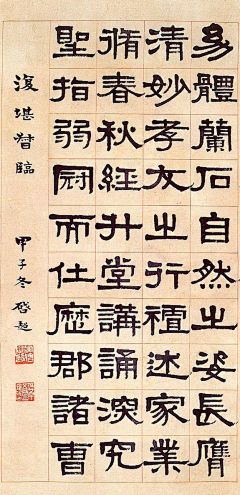 幼體蘭石自然之姿長膺
清妙孝友之行襢述家業
脩春秋經升堂講誦深究
聖指弱冠而仕歷郡諸曹
復堪督臨 甲子冬啓超